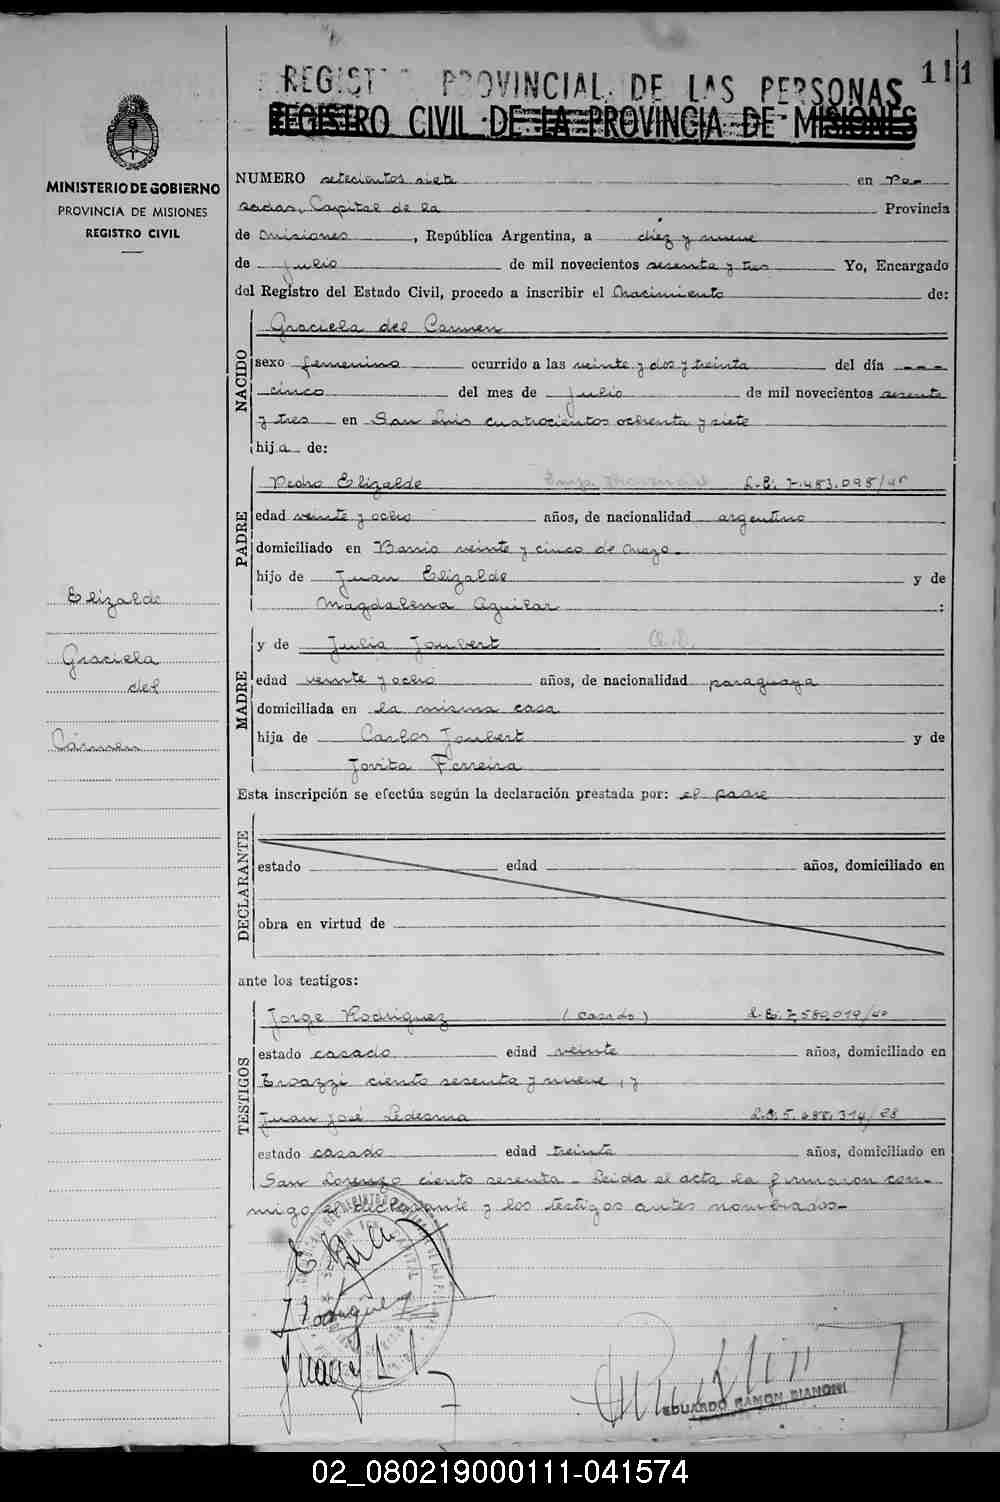 111
REGIST PROVINCIAL DE LAS PERSONAS
REGISTRO CIVIL DE LA PROVINCIA DE MISIONES
MINISTERIO DE GOBIERNO
PROVINCIA DE MISIONES
REGISTRO CIVIL
NUMERO setecientos siete en Po-
sadas, Capital de la Provincia
de Misiones, República Argentina, a diez y nueve
de julio de mil novecientos sesenta y tres Yo, Encargado
del Registro del Estado Civil, procedo a inscribir el Nacimiento de:
NACIDO
Graciela del Carmen
sexo femenino ocurrido a las veinte y dos y treinta del día ---
cinco del mes de julio de mil novecientos sesenta
y tres en San Luis cuatrocientos ochenta y siete
hija de:
PADRE
Pedro Elizalde L.E. 7.483.098/40
edad veinte y ocho años, de nacionalidad argentino
domiciliado en Barrio veinte y cinco de Mayo-
hijo de Juan Elizalde y de
Magdalena Aguilar :
MADRE
y de Julia Joubert
edad veinte y ocho años, de nacionalidad paraguaya
domiciliada en la misma casa
hija de Carlos Joubert y de
Jovita Ferreira
Elizalde
Graciela
del
Cármen
Esta inscripción se efectúa según la declaración prestada por: el padre
DECLARANTE
estado edad años, domiciliado en
obra en virtud de
ante los testigos:
TESTIGOS
Jorge Rodriguez (casado) L.E. 7.580.019/40
estado casado edad veinte años, domiciliado en
ciento sesenta y nueve, y
Juan José Ledesma
estado casado edad treinta años, domiciliado en
San Lorenzo ciento sesenta- Leida el acta la firmaron con-
migo el declarante y los testigos antes nombrados-
JRodriguez
EDUARDO RAMON BIANCHI
02_080219000111-041574